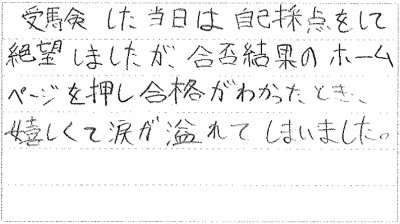 受験した当日は自己採点をして
絶望しましたが、合否結果のホーム
ページを押し合格がわかったとき、
嬉しくて涙が溢れてしまいました。